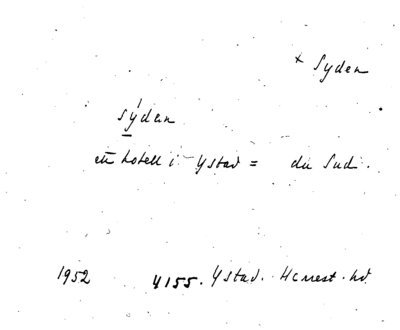 x Syden
sýden
ett hotell i Ystad = du Sud.
1952 4155. Ystad. Herrest. hd